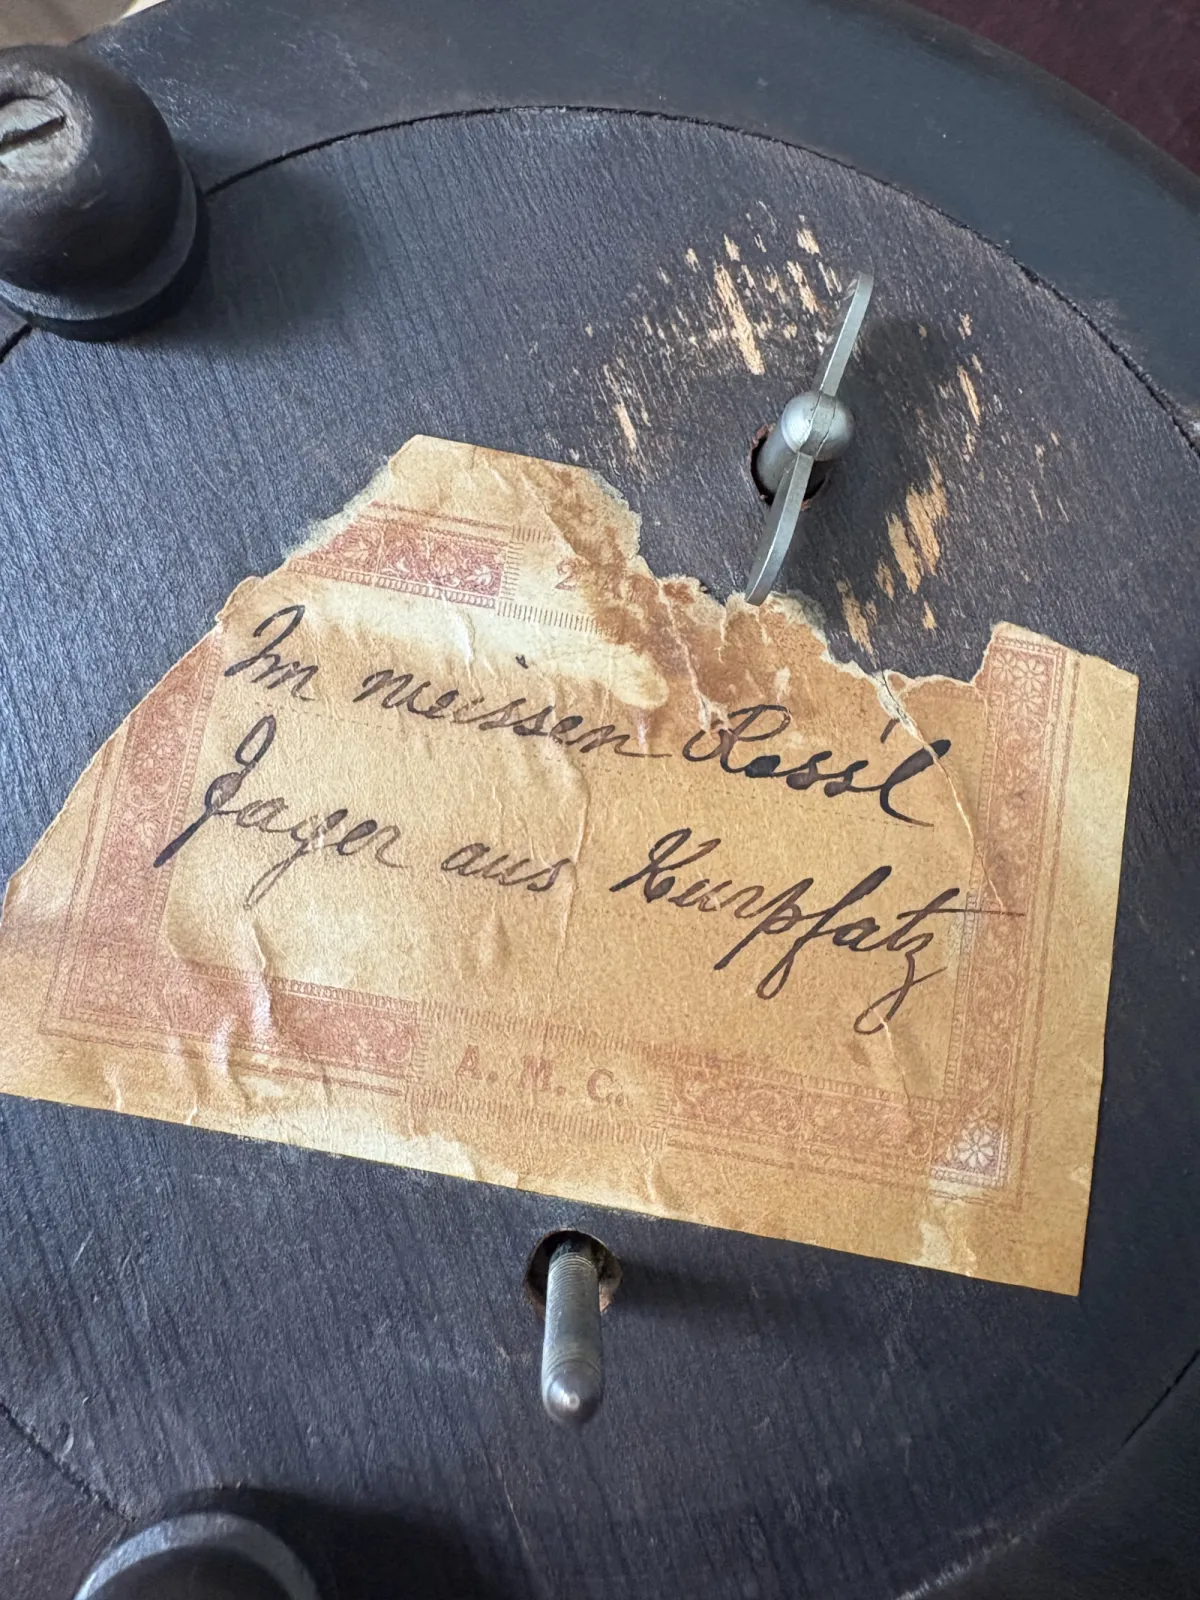 2 A
Im weissen Rössl
Jager aus Kurpfatz
A. M. C.